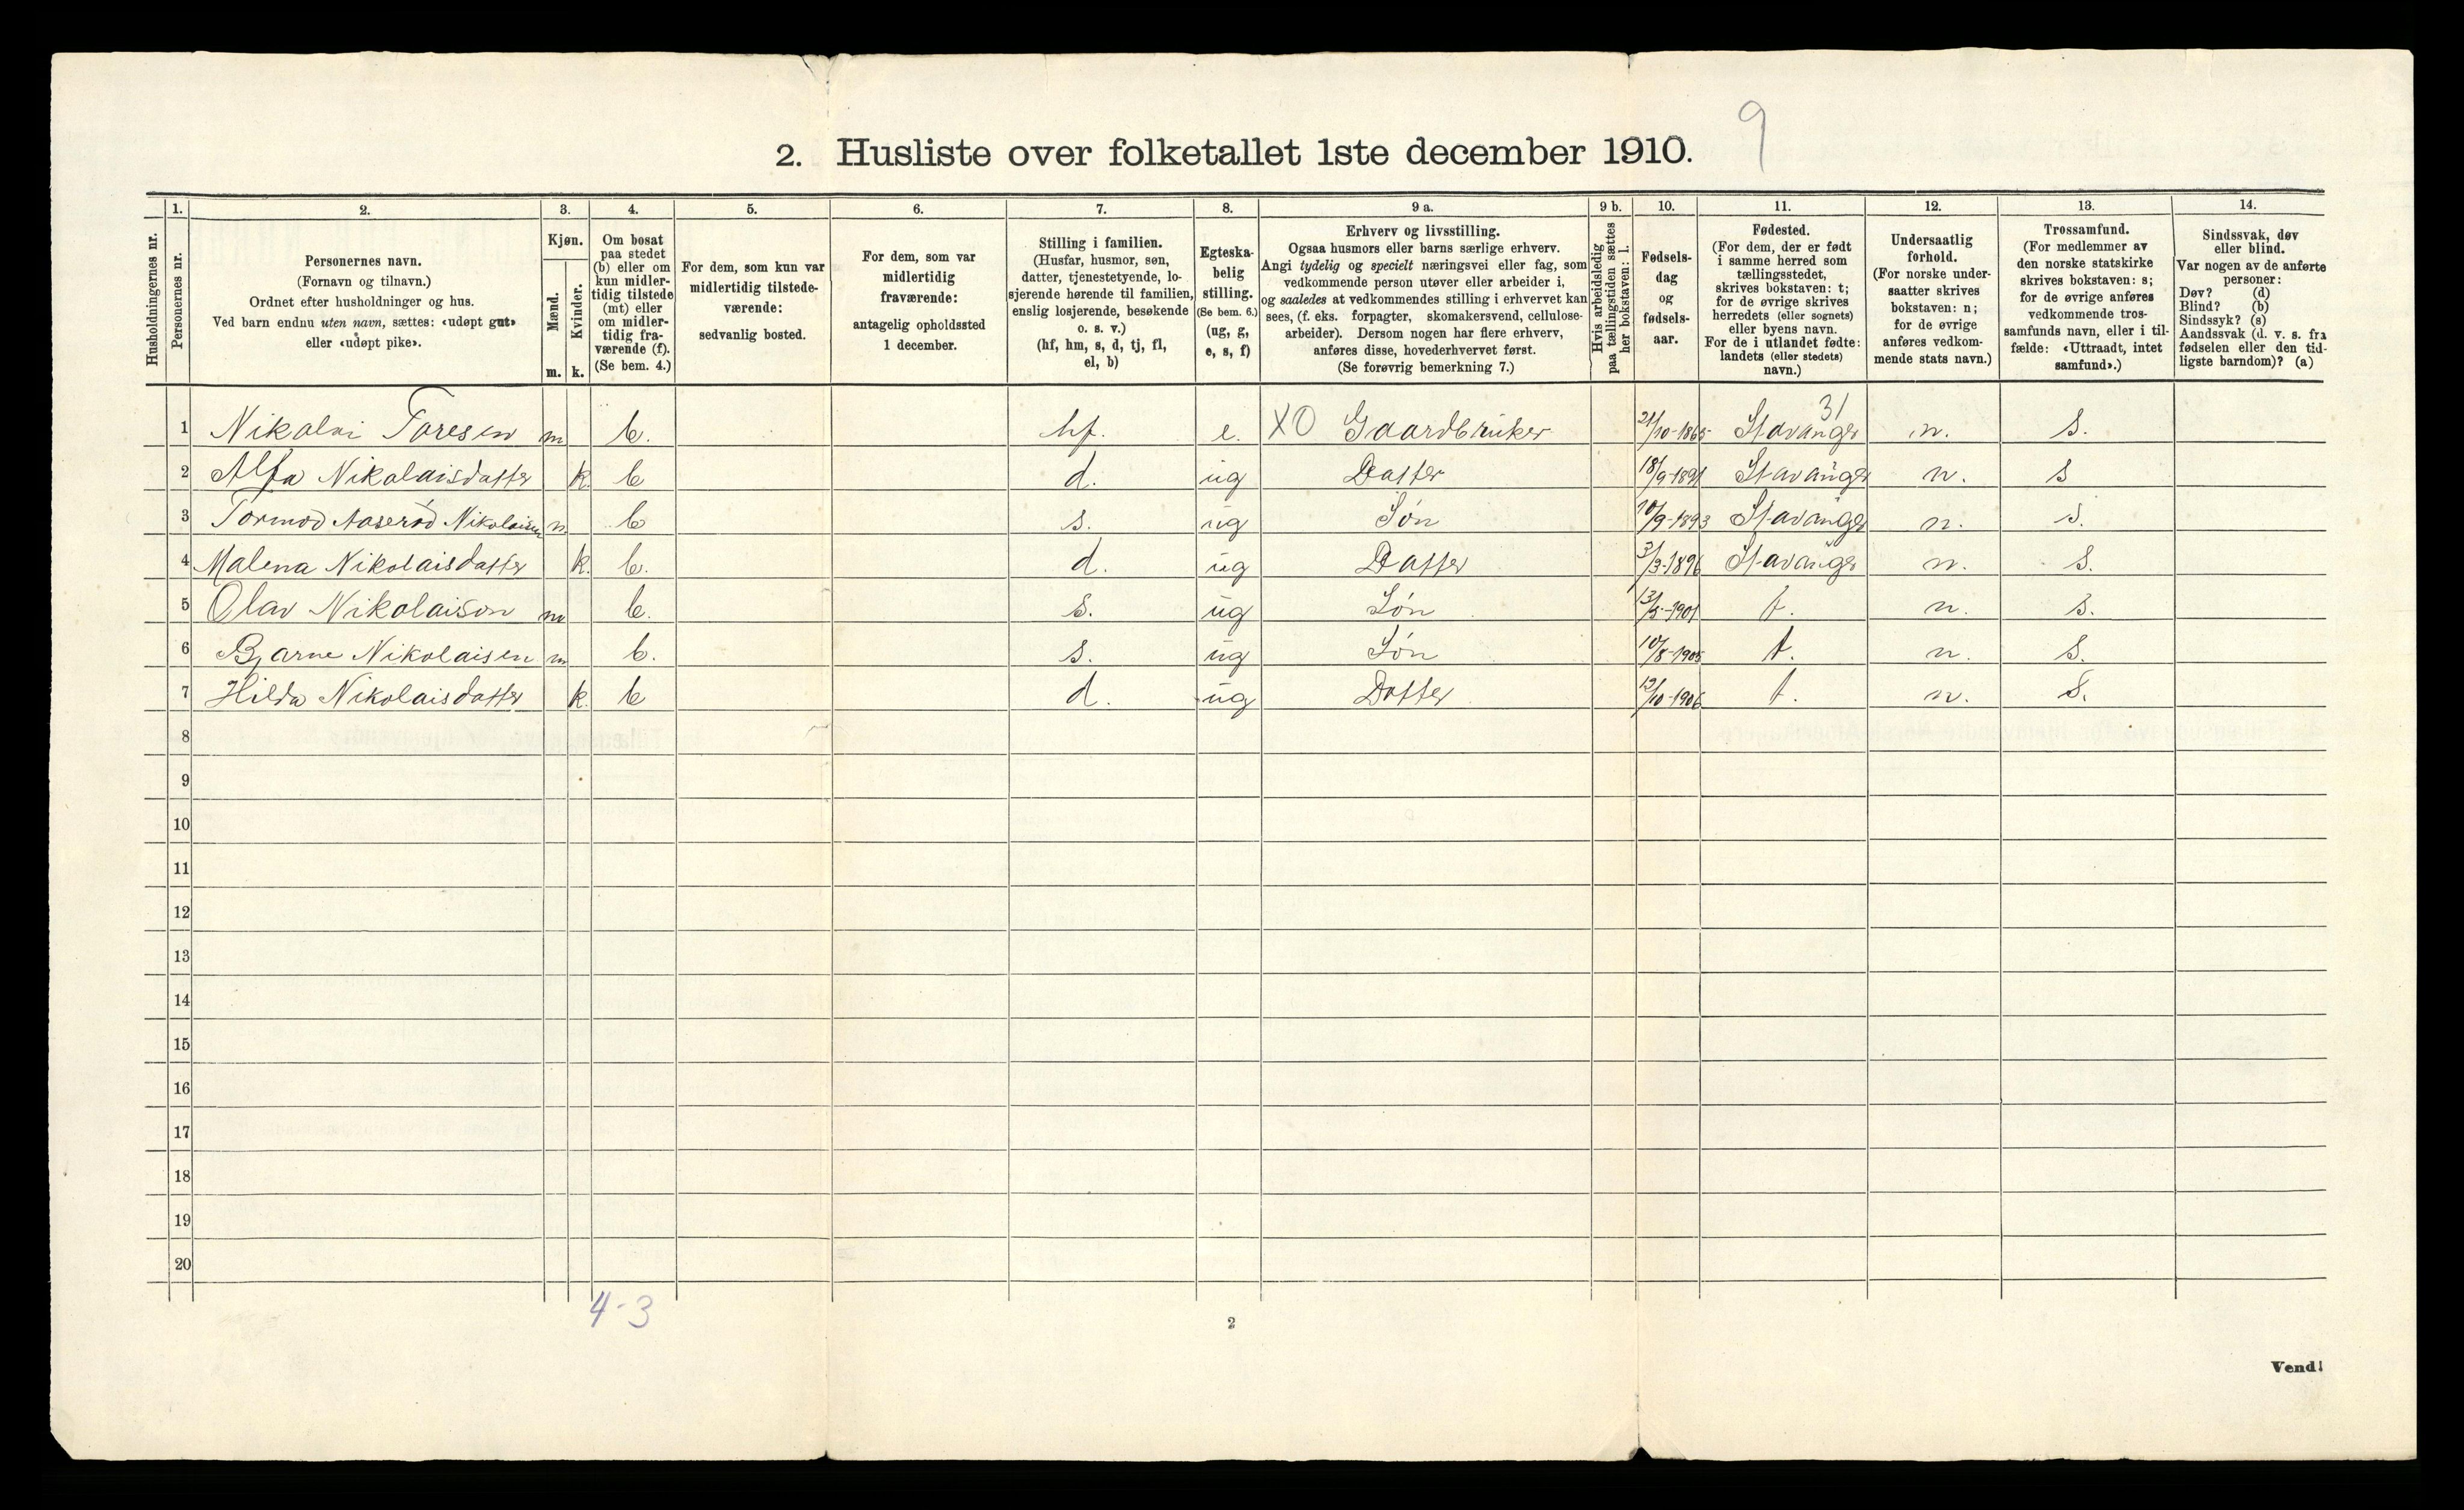 9
2. Husliste over folketallet 1ste december 1910.
Husholdningernes nr.
1.
Personernes nr.
2.
Personernes navn.
(Fornavn og tilnavn.)
Ordnet efter husholdninger og hus.
Ved barn endnu uten navn, sættes: «udøpt gut»
eller «udøpt pike».
3.
Kjøn.
Mænd.
m.
Kvinder.
k.
4.
Om bosat
paa stedet
(b) eller om
kun midler-
tidig tilstede
(mt) eller
om midler-
tidig fra-
værende (f).
(Se bem. 4.)
5.
For dem, som kun var
midlertidig tilstede-
værende:
sedvanlig bosted.
6.
For dem, som var
midlertidig
fraværende:
antagelig opholdssted
1 december.
7.
Stilling i familien.
(Husfar, husmor, søn,
datter, tjenestetyende, lo-
sjerende hørende til familien,
enslig losjerende, besøkende
o. s. v.)
(hf, hm, s, d, tj, fl,
el, b)
8.
Egteska-
belig
stilling.
(Se bem. 6.)
(ug, g,
e, s, f)
9 a.
Erhverv og livsstilling.
Ogsaa husmors eller barns særlige erhverv.
Angi tydelig og specielt næringsvei eller fag, som
vedkommende person utøver eller arbeider i,
og saaledes at vedkommendes stilling i erhvervet kan
sees, (f. eks. forpagter, skomakersvend, cellulose-
arbeider). Dersom nogen har flere erhverv,
anføres disse, hovederhvervet først.
(Se forøvrig bemerkning 7.)
9 b.
Hvis arbeidsledig
paa tællingstiden sættes
her bokstaven: l.
10.
Fødsels-
dag
og
fødsels-
aar.
11.
Fødested.
(For dem, der er født
i samme herred som
tællingsstedet,
skrives bokstaven: t;
for de øvrige skrives
herredets (eller sognets)
eller byens navn.
For de i utlandet fødte:
landets (eller stedets)
navn.)
12.
Undersaatlig
forhold.
(For norske under-
saatter skrives
bokstaven: n;
for de øvrige
anføres vedkom-
mende stats navn.)
13.
Trossamfund.
(For medlemmer av
den norske statskirke
skrives bokstaven: s;
for de øvrige anføres
vedkommende tros-
samfunds navn, eller i til-
fælde: «Uttraadt, intet
samfund».)
14.
Sindssvak, døv
eller blind.
Var nogen av de anførte
personer:
Døv? (d)
Blind? (b)
Sindssyk? (s)
Aandssvak (d. v. s. fra
fødselen eller den tid-
ligste barndom)? (a)
31
1 Nikolai Toresen m b. hf. e. XO Gaardbruker 21/10-1865 Stavanger n. s.
2 Alfa Nikolaisdatter k. b d. ug Datter 18/9-1891 Stavanger n. s
3 Tormod Aaserød Nikolaisen m b s. ug Søn 10/9-1893 Stavanger n. s.
4 Malena Nikolaisdatter k. b. d. ug Datter 3/3-1896 Stavanger n. s.
5 Olav Nikolaison m b. s. ug Søn 13/5-1901 t. n. s.
6 Bjarne Nikolaisen m b. s. ug Søn 10/8-1905 t. n. s.
7 Hilda Nikolaisdatter k. b d. ug Datter 12/10-1906 t. n. s.
8
9
10
11
12
13
14
15
16
17
18
19
20
4-3
2
Vend!